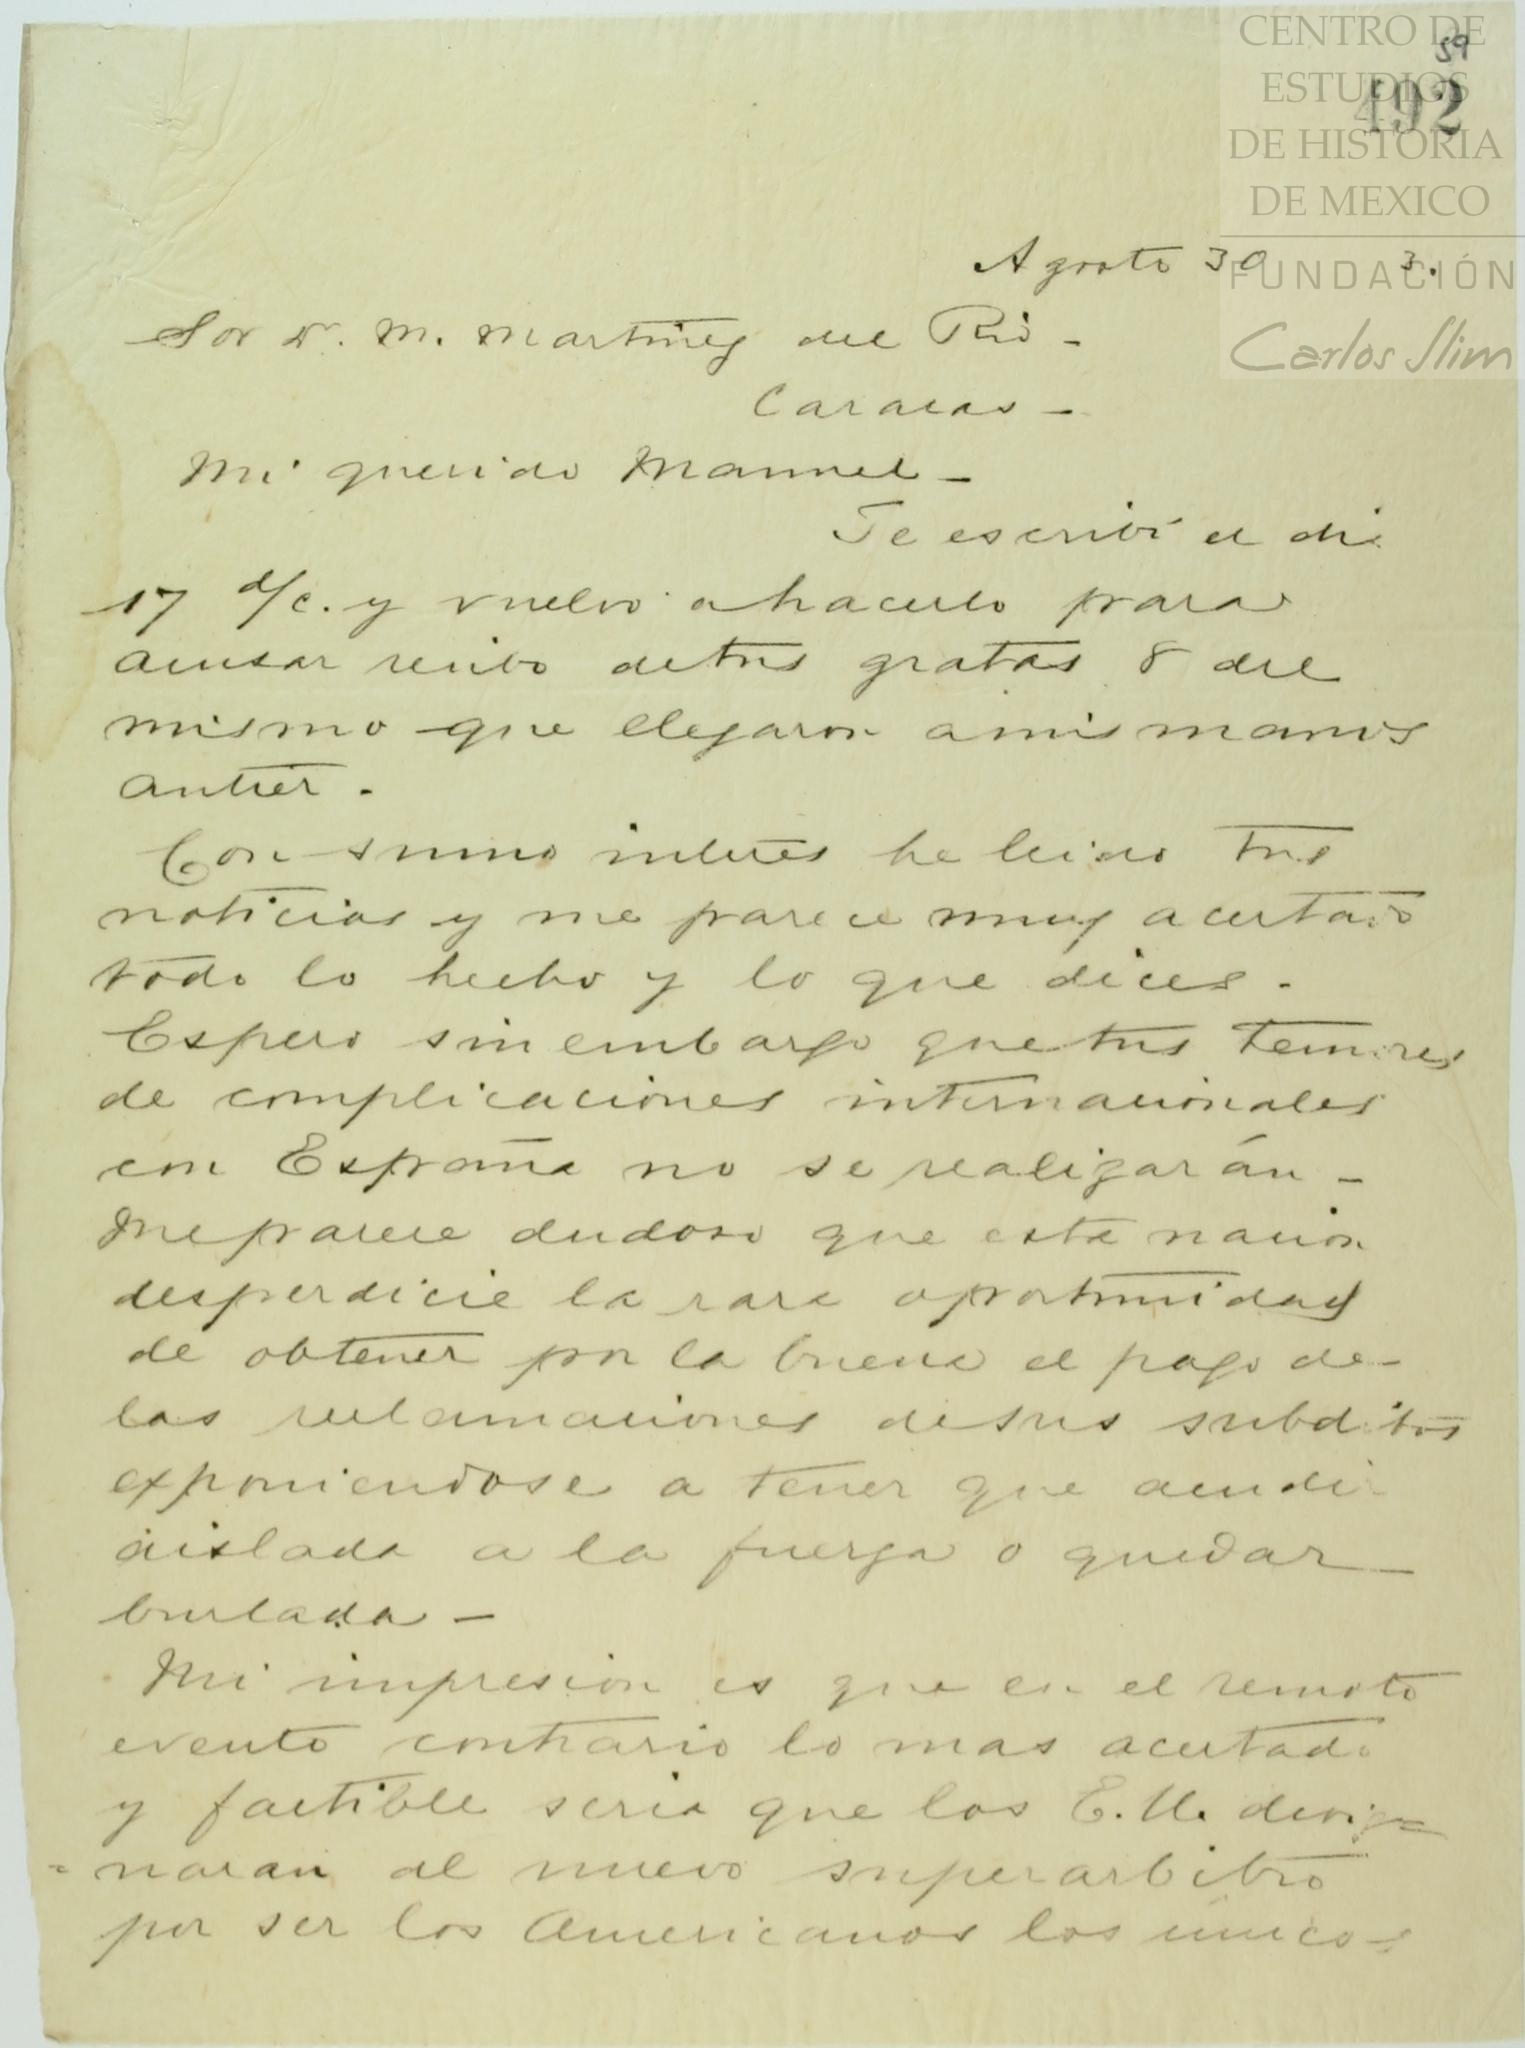 CENTRO DE
ESTUDIOS
DE HISTORIA
DE MEXICO
FUNDACIÓN
Carlos Slim
59
492
Agosto 30 3.
Sor Dr. M. Martinez del Rio -
Caracas -
Mi querido Manuel -
Te escribí el dia
17 d/c. y vuelvo a hacerlo para
acusar recibo de tus gratas 8 del
mismo que llegaron a mis manos
antier.
Con sumo interes he leido tus
noticias y me parece muy acertado
todo lo hecho y lo que dices.
Espero sin embargo que tus temores
de complicaciones internacionales
con España no se realizarán -
Me parece dudoso que esta nacion
desperdicie la rara oportunidad
de obtener por la buena el pago de
las reclamaciones de sus subditos
exponiendose a tener que acudir
aislada a la fuerza o quedar
burlada -
Mi impresion es que en el remoto
evento contrario lo mas acertado
y factible seria que los E.U. desig=
=naran al nuevo superarbitro
por ser los Americanos los únicos